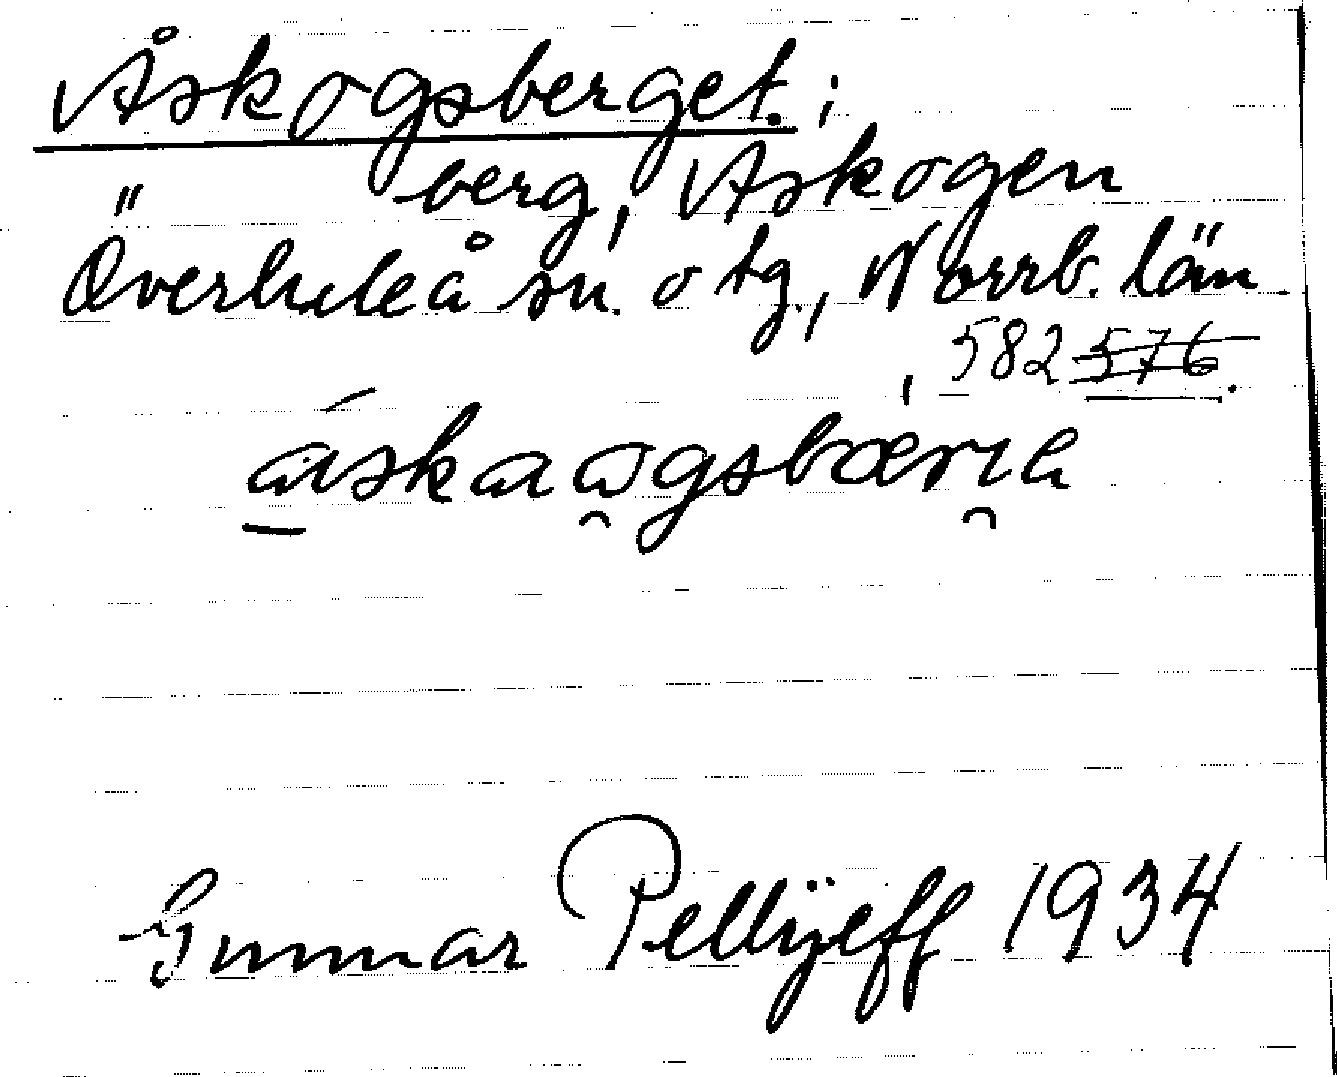 Åskogsberget.;
berg, Åskogen
Överluleå sn. o tg., Norrb. län
582 576.
áskaogsbærıe
Gunnar Pellijeff 1934